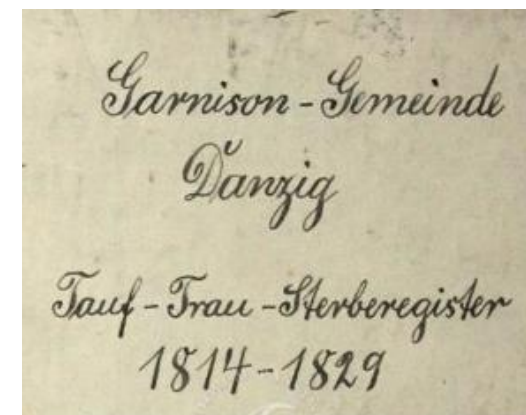 Garnison-Gemeinde
Danzig
Tauf-Trau-Sterberegister
1814-1829